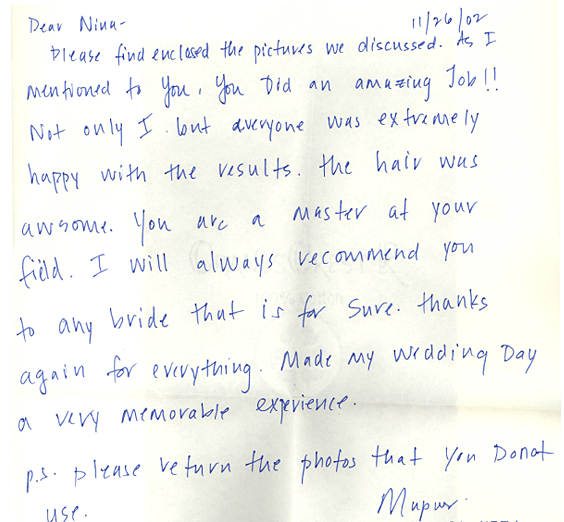 Dear Nina- 11/26/02
Please find enclosed the pictures we discussed. As I
mentioned to you, you Did an amazing Job!!
Not only I but averyone was extremely
happy with the results. the hair was
awsome. You are a master at your
field. I will always recommend you
to any bride that is for sure. thanks
again for everything. Made my wedding Day
a very memorable experience.
p.s. please return the photos that you Donot
use.